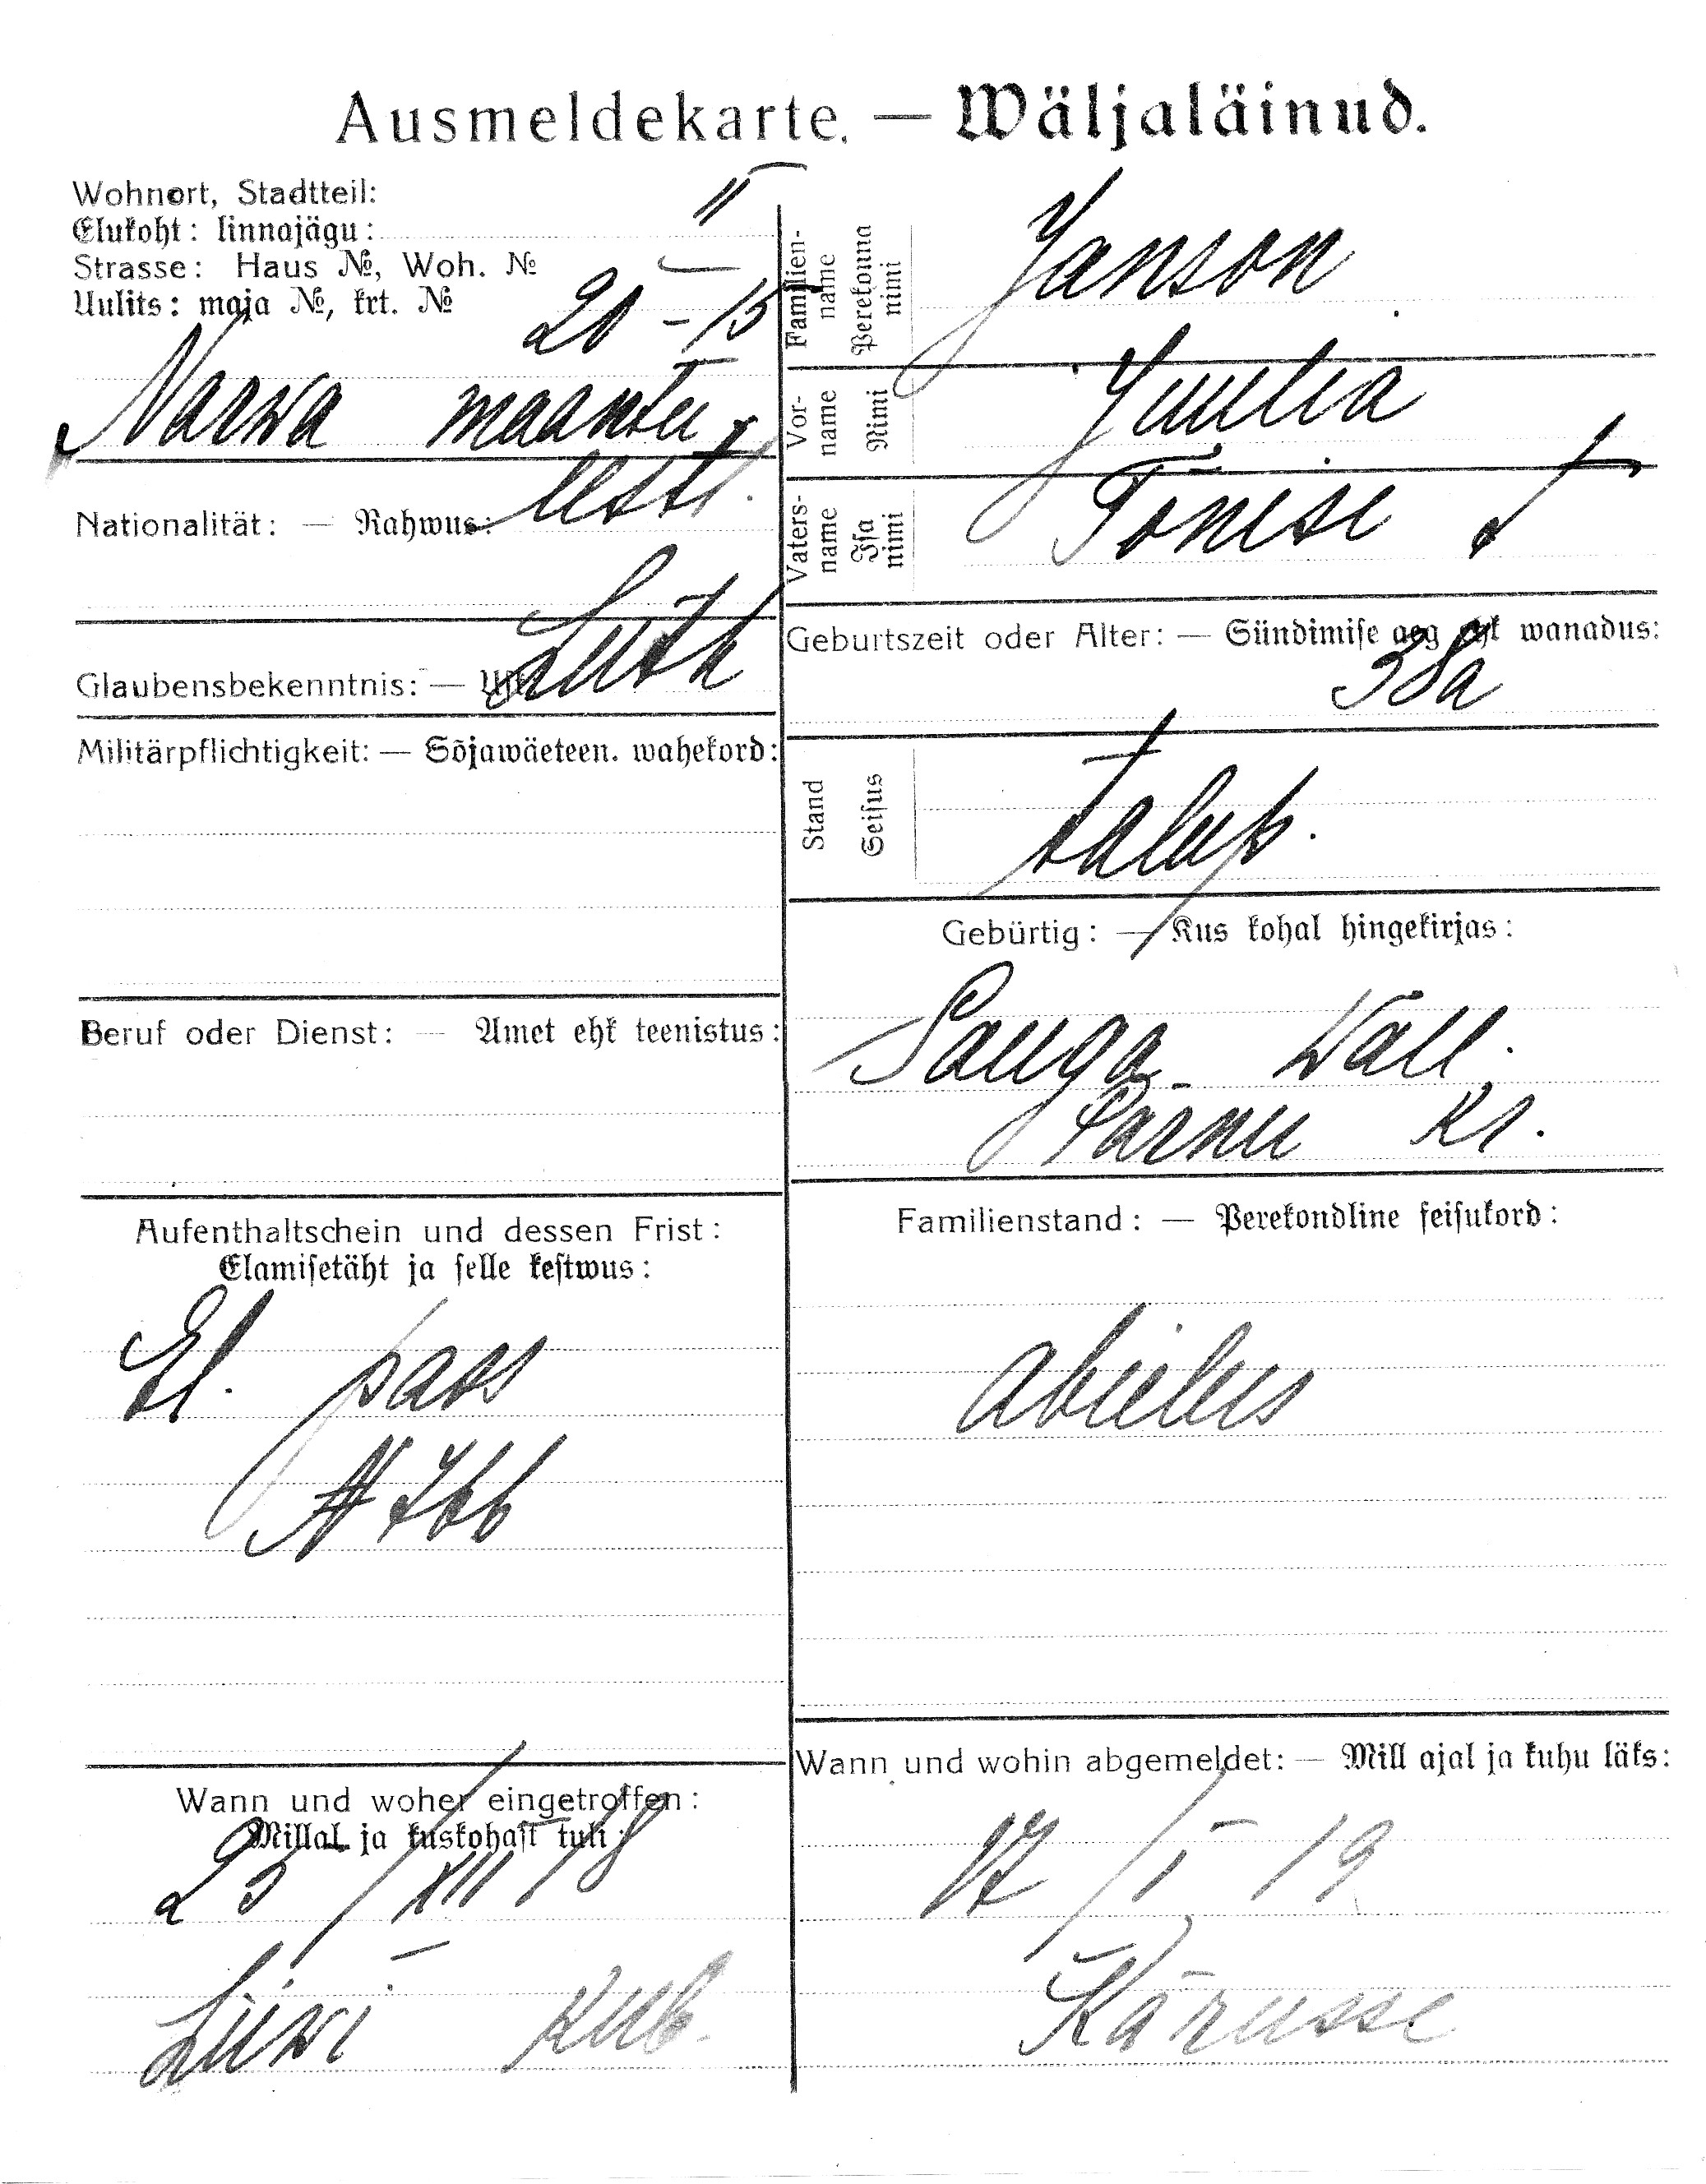 Ausmeldekarte. — Wäljaläinud.
Wohnort, Stadtteil:
Elukoht: linnajägu: II
Strasse: Haus №, Woh. №
Uulits: maja №, krt. № 20 - 15
Narwa maantee
Nationalität: — Rahwus: eesti.
Glaubensbekenntnis: — Luth
Militärpflichtigkeit: — Sõjawäeteen. wahekord:
Beruf oder Dienst: — Amet ehk teenistus:
Aufenthaltschein und dessen Frist:
Elamisetäht ja selle kestwus:
El. pass
№ 766
Wann und woher eingetroffen:
Millal ja kuskohast tuli:
23/XII 18
Liiwi Kub.
Familien-
name
Perekonna
nimi
Janson
Vor-
name
Nimi
Juulia
Vaters-
name
Isa
nimi
Tõnise t
Geburtszeit oder Alter: — Sündimise aeg ehk wanadus:
38a
Stand
Seisus
talup.
Gebürtig: — Kus kohal hingekirjas:
Sauga wall.
Pärnu Kr.
Familienstand: — Perekondline seisukord:
abielus
Wann und wohin abgemeldet: — Mill ajal ja kuhu läks:
17/I 19
Kärusse